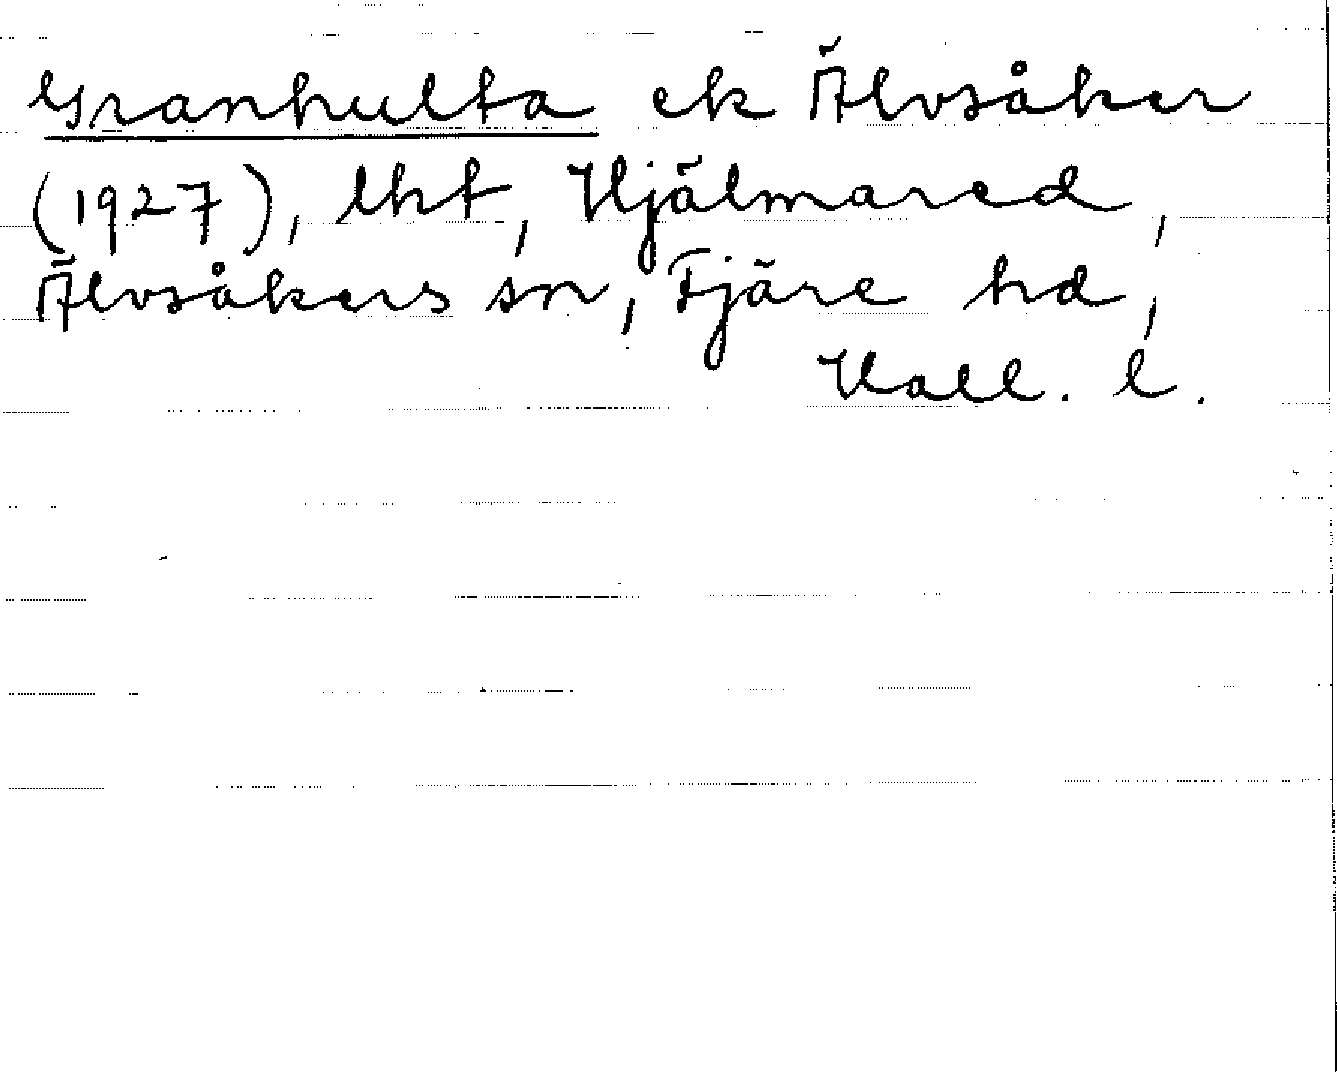 Granhulta ek Älvsåker
(1927), lht, Hjälmared,
Älvsåkers sn, Fjäre hd,
Hall. l.